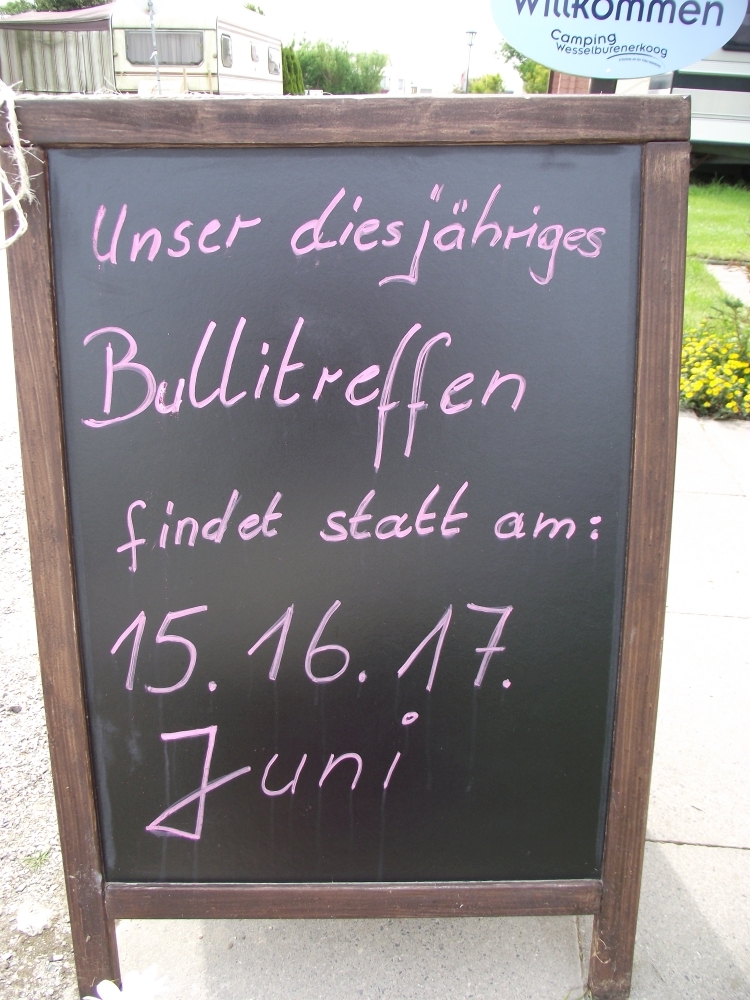 Willkommen
Camping
Wesselburenerkoog
Unser diesjähriges
Bullitreffen
findet statt am:
15. 16. 17.
Juni